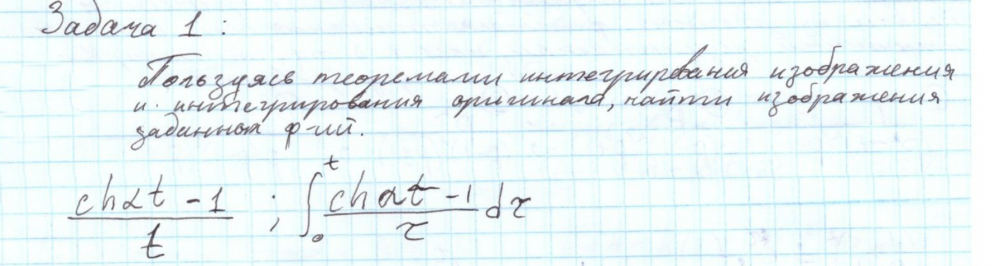 Задача 1 :
Пользуясь теоремами интегрирования изображения
и интегрирования оригинала, найти изображения
заданных ф-ий.
(ch αt - 1) / t ; ∫₀ᵗ (ch ατ - 1) / τ dτ